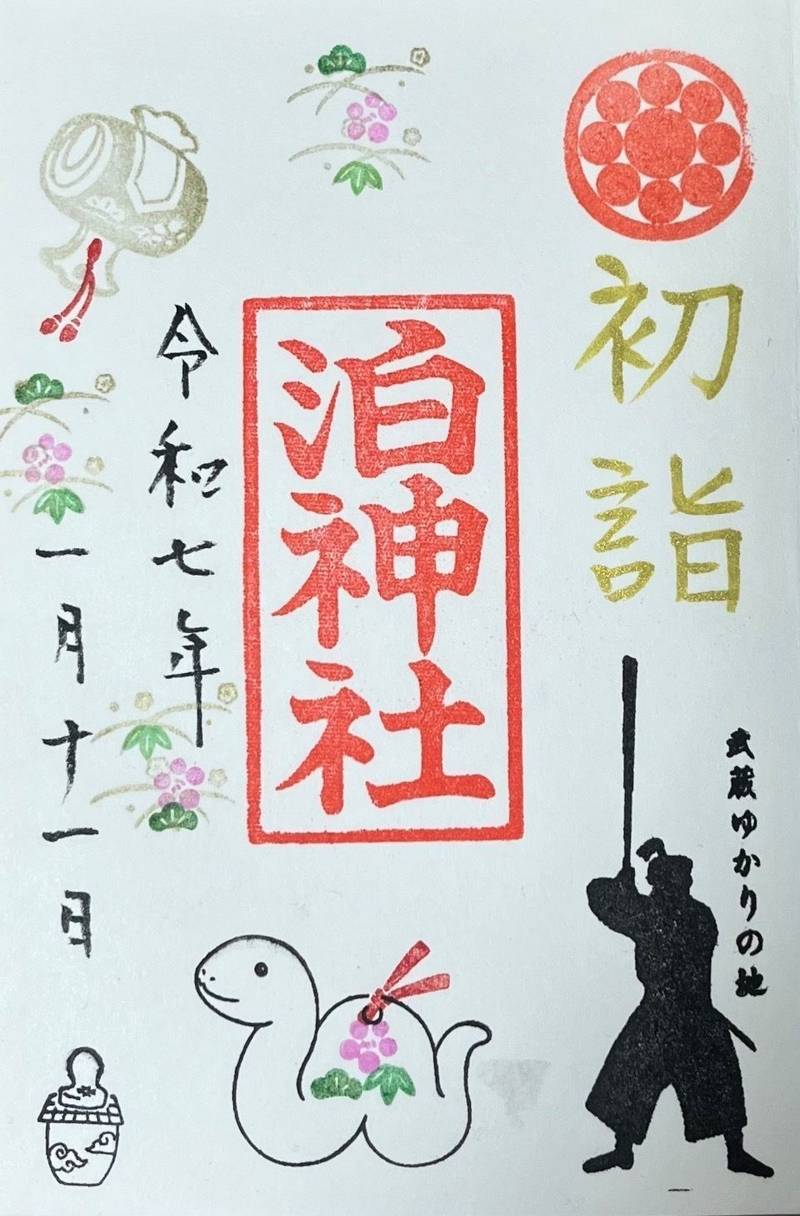 初詣
武蔵ゆかりの地
泊神社
令和七年
一月十一日